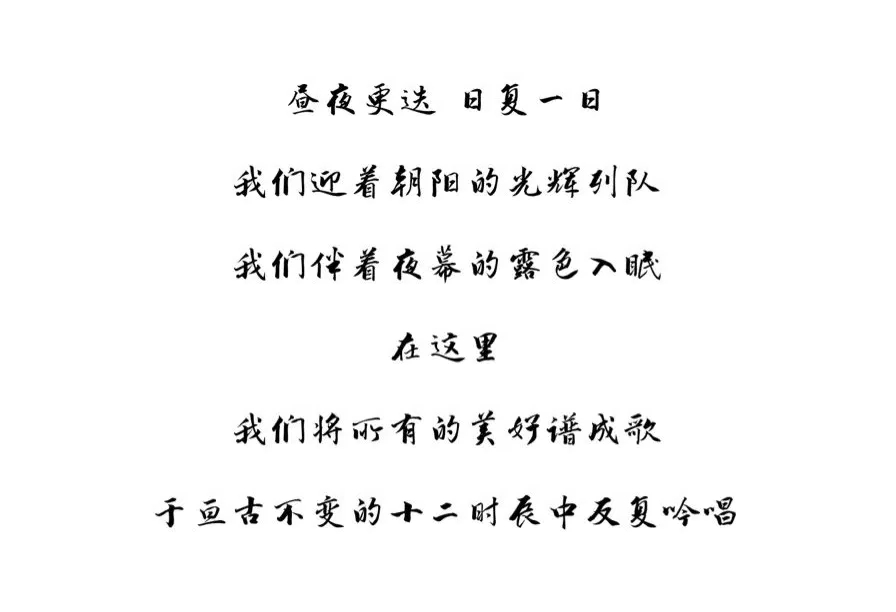 昼夜更迭 日复一日
我们迎着朝阳的光辉列队
我们伴着夜幕的露色入眠
在这里
我们将所有的美好谱成歌
于亘古不变的十二时辰中反复吟唱